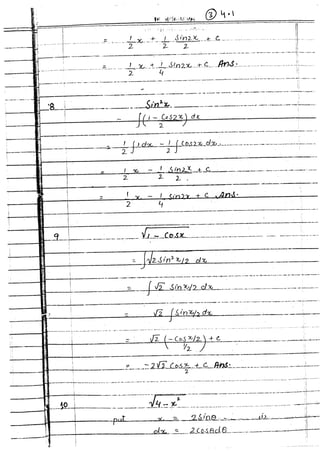 ③ 4.1
= 1/2 x + 1/2 sin2x/2 + c
= 1/2 x + 1/4 sin2x + c Ans.
8 Sin²x
- ∫(1 - Cos2x / 2) dx
= 1/2 ∫1 dx - 1/2 ∫cos2x dx
= 1/2 x - 1/2 sin2x/2 + c
= 1/2 x - 1/4 sin2x + c Ans.
9 √1 - Cosx
= ∫√2 sin² x/2 dx
= ∫√2 sin x/2 dx
= √2 ∫sin x/2 dx
= √2 (-Cos x/2 / 1/2) + c
= -2√2 Cos x/2 + c Ans.
10 √4 - x²
put x = 2 Sinθ
dx = 2 cosθdθ